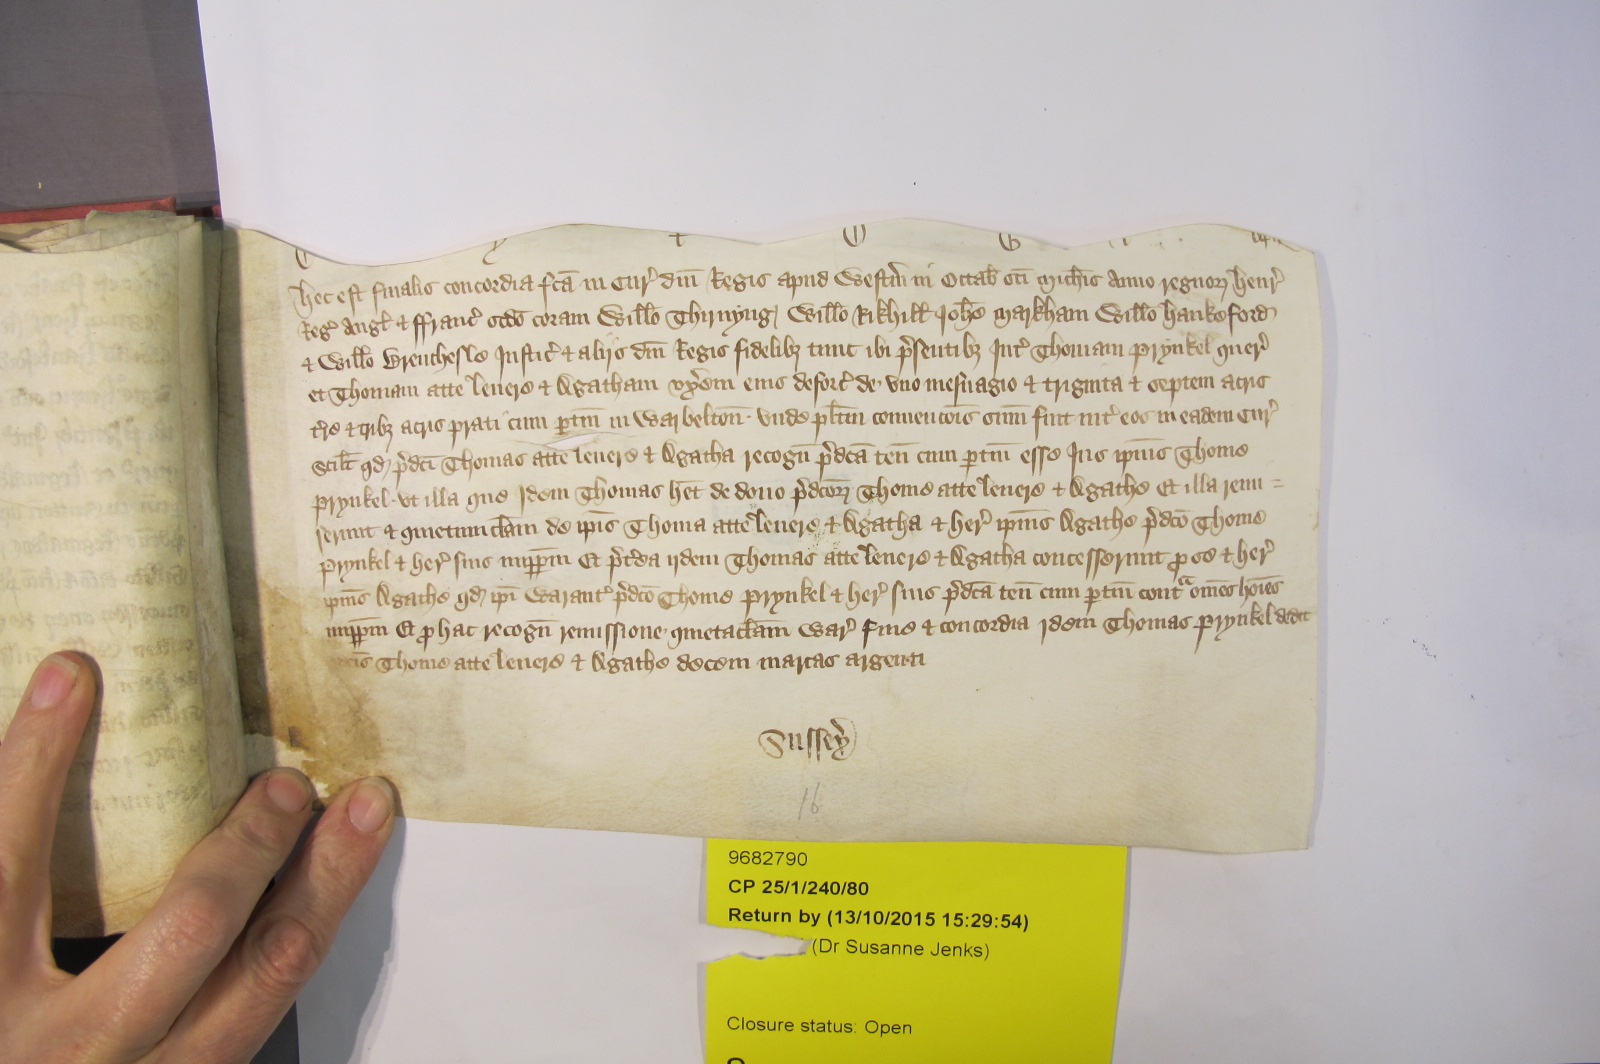 Hec est finalis concordia fc̃a in Cur̉ dñi Regis apud Westm̃ in Octab̉ sc̃i Mich̃is Anno regnoꝝ Henr̉
Reg̉ Angl̉ & ffranc̉ octõ coram Will̃o Thirnyng, Will̃o Rikhill̉ Joh̃e Markham Will̃o Hankeford
& Will̃o Brencheslᷓe Justic̉ & alijs dñi Regis fidelibꝫ tunc ibi p̉sentibꝫ Int̉ Thomam Prynkel quer̉
et Thomam atte Leuere & Agatham vx̉em eius deforc̉ de vno mesuagio & triginta & septem acris
t̉re & tribꝫ acris prati cum ptiñ in Warbelton̉. Vnde pl̃itm conuenc̃ois sum̃ fuit int̉ eos in eadem Cur̉
Scil̃t qd̉ p̉dc̃i Thomas atte Leuere & Agatha recogñ p̉dc̃a teñ cum ptiñ esse Jus ip̃ius Thome
Prynkel. vt illa que idem Thomas het̃ de dono p̉dc̃oꝝ Thome atte Leuere & Agathe Et illa remi =
serunt & quietumclam̃ de ip̃is Thoma atte Leuere & Agatha & her̉ ip̃ius Agathe p̉dc̃o Thome
Prynkel & her̉ suis imppm̃ Et p̉t̉ea ijdem Thomas atte Leuere & Agatha concesserunt p se & her̉
ip̃ius Agathe qd̉ ip̃i Warant̉ p̉dc̃o Thome Prynkel & her̉ suis p̉dc̃a teñ cum ptiñ contᵃ om̃es ho̅ies
imppm̃ Et p hac recogñ remissione. quietaclam̃ War̉ fine & concordia idem Thomas Prynkel dedit
Thome atte Leuere & Agathe decem marcas argenti
Sussex̉
16
9682790
CP 25/1/240/80
Return by (13/10/2015 15:29:54)
(Dr Susanne Jenks)
Closure status: Open